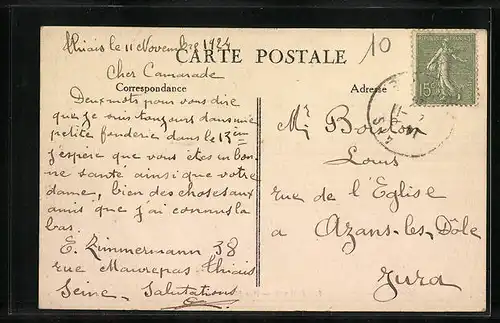 Thiais le 11 Novembre 1924
CARTE POSTALE
10
Cher Camarade
Correspondance
Adresse
15c
Deux mots pour vous dire
que je suis toujours dans une
petite fonderie dans le 13ème
j'espère que vous êtes en bon-
ne santé ainsi que votre
dame, bien des choses aux
amis que j'ai connus la
bas.
E. Zimmermann 38
rue Maurepas Thiais
Seine - Salutations
Mr
Louis
rue de l'Eglise
a Azans-les-Dôle
Jura